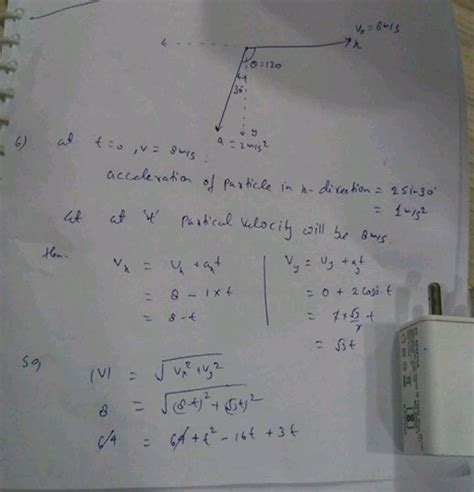 v₀ = 8 m/s
x
θ = 120
30
y
a = 2 m/s²
6) at t = 0, v = 8 m/s
acceleration of particle in x-direction = 2 sin 30°
= 1 m/s²
Let at 't' partical velocity will be 8 m/s.
then.
Vₓ = Uₓ + aₓt
= 8 - 1×t
= 8 - t
Vy = Uy + ayt
= 0 + 2 cos30 t
= 2 × √3/2 t
= √3 t
So
|V| = √(Vx² + Vy²)
8 = √((8-t)² + (√3t)²
64 = 64 + t² - 16t + 3t